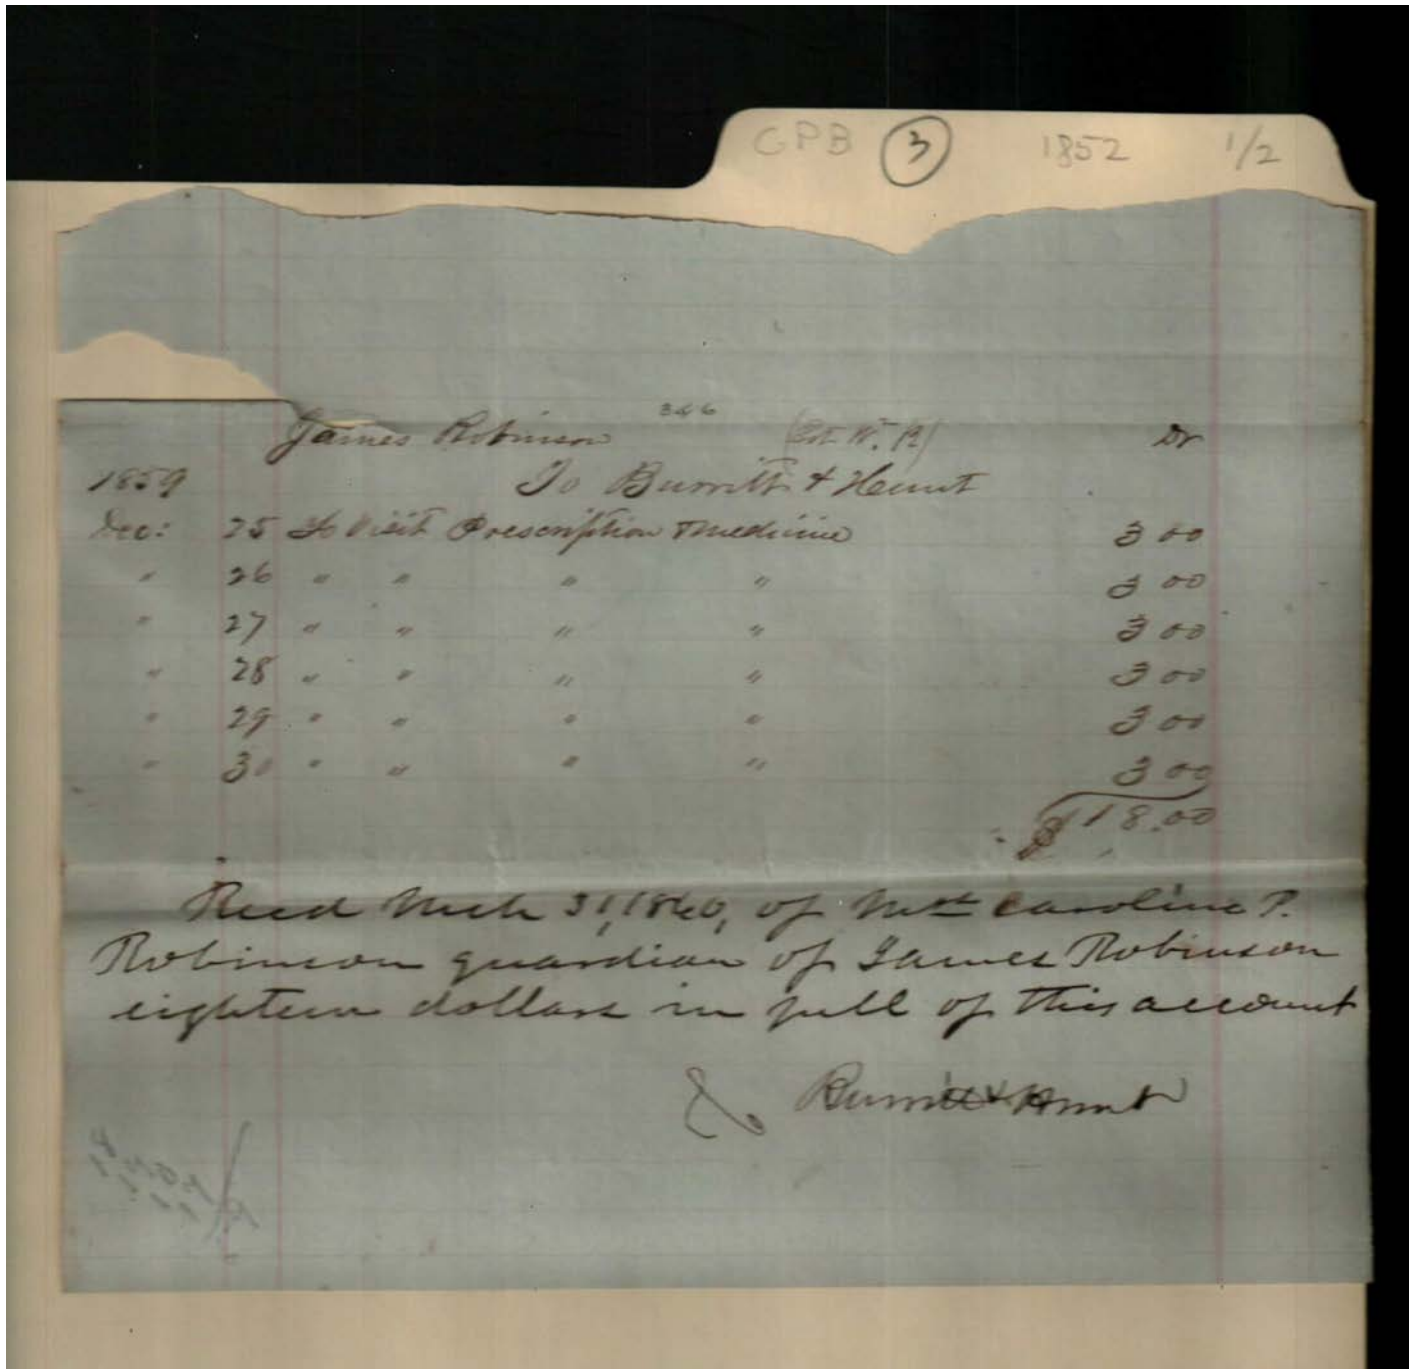 GPB 3 1852 1/2
346
James Robinson (Est. W. R) Dr
1859 To Burritt & Hunt
Dec: 25 To Visit Prescription & Medicine 3 00
" 26 " " " " 3 00
" 27 " " " " 3 00
" 28 " " " " 3 00
" 29 " " " " 3 00
" 30 " " " " 3 00
$18.00
Recd Mch 31, 1860, of Mrs Caroline P.
Robinson guardian of James Robinson
eighteen dollars in full of this account
Burritt & Hunt